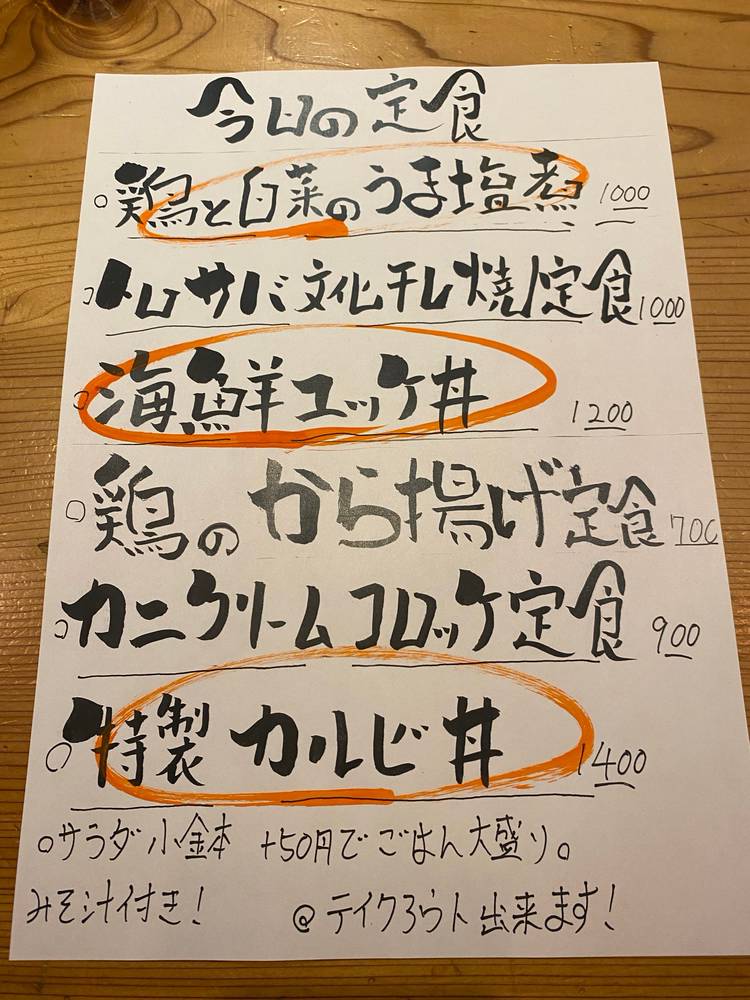 今日の定食
○鶏と白菜のうま塩煮 1000
○トロサバ文化干し焼定食 1000
○海鮮ユッケ丼 1200
○鶏のから揚げ定食 700
○カニクリームコロッケ定食 900
○特製カルビ丼 1400
○サラダ小鉢 +50円でごはん大盛り。
みそ汁付き! @テイクアウト出来ます!